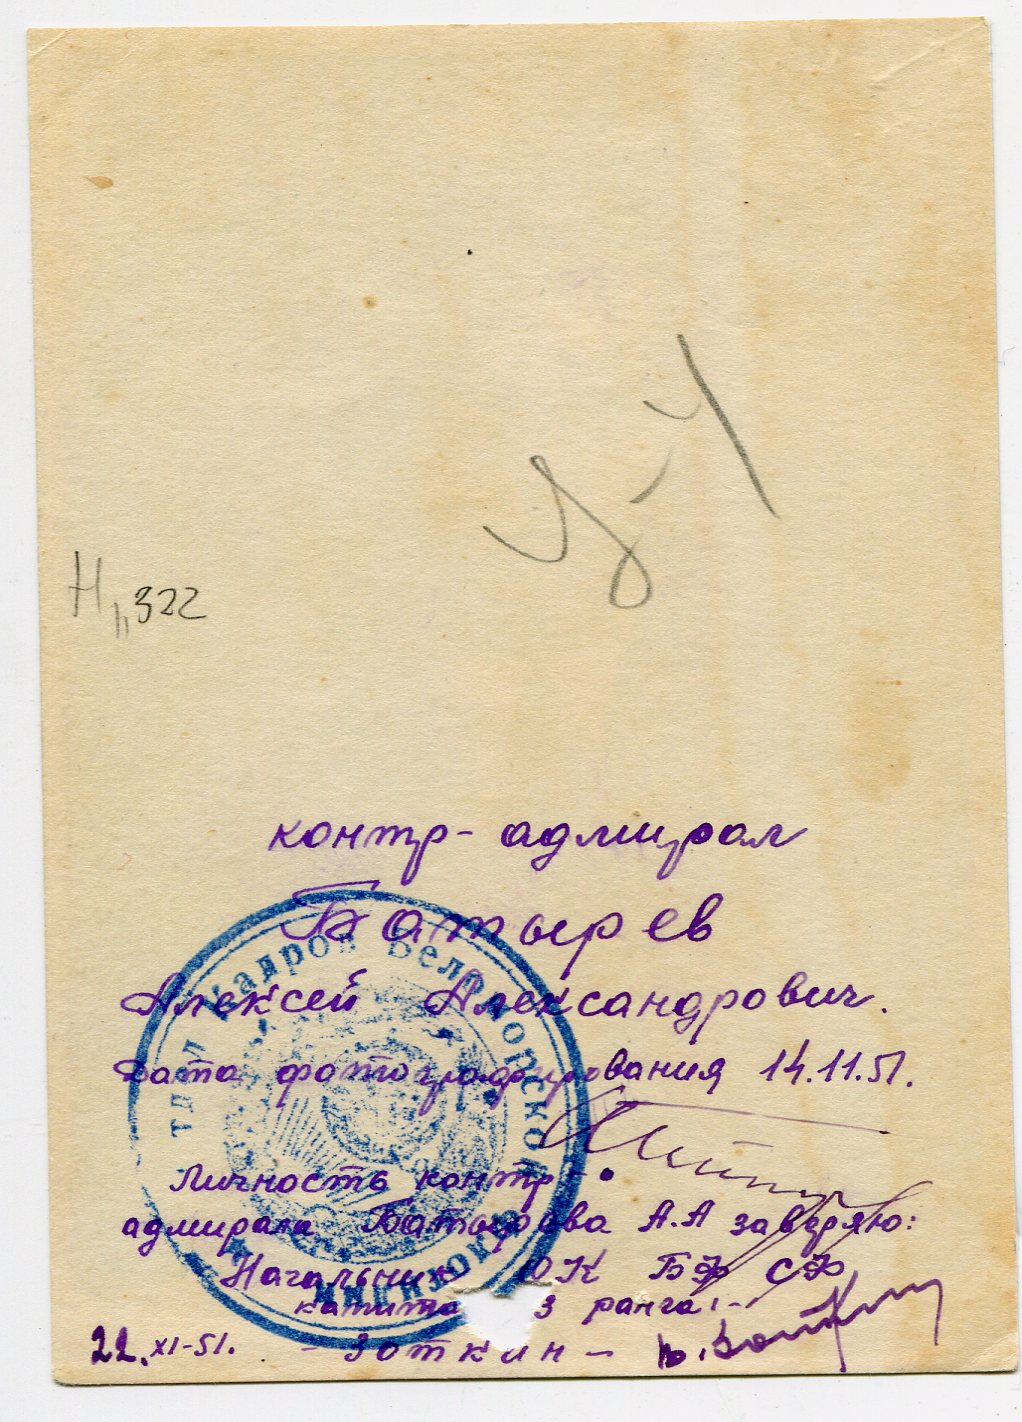 У-4
Н 322
контр-адмирал
Батырев
Алексей Александрович.
Дата фотографирования 14.11.51.
Личность контр-
адмирала Батырева А.А заверяю:
Начальник ОК БФ СФ
капитан 3 ранга:-
22.XI-51. -Зоткин-
тдел Кадров Беломорской
Флотилии